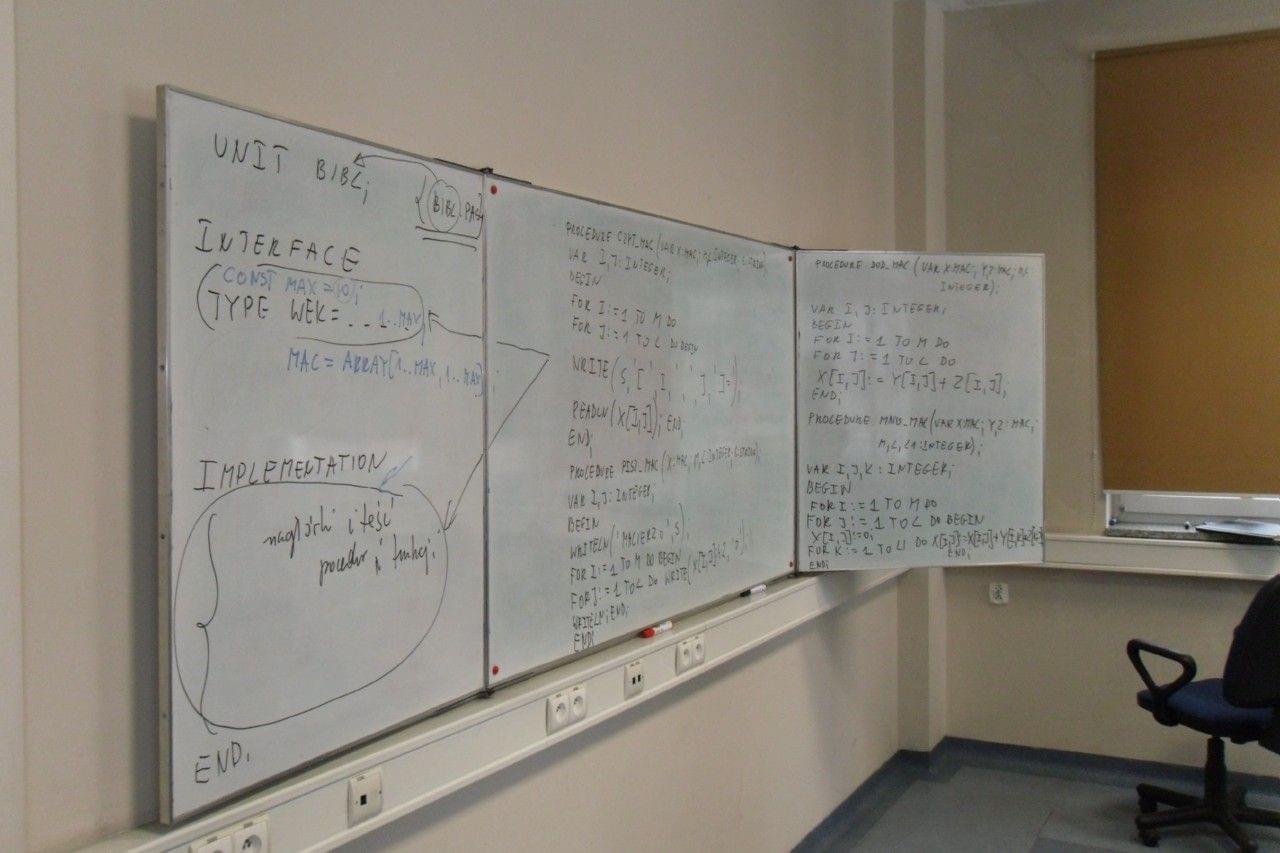 UNIT BIBL;
{BIBL.PAS}
INTERFACE
CONST MAX = 10;
TYPE WEK = . . 1..MAX
MAC = ARRAY[1..MAX, 1..MAX]
IMPLEMENTATION
nagłówki i treść
procedur i funkcji
END.
PROCEDURE CZYT_MAC(VAR X:MAC; M,L:INTEGER; S:STRING)
VAR I,J: INTEGER;
BEGIN
FOR I:=1 TO M DO
FOR J:=1 TO L DO BEGIN
WRITE(S,'[', I, ',', J, ']=');
READLN(X[I,J]); END;
END;
PROCEDURE PISZ_MAC(X:MAC; M,L:INTEGER; S:STRING);
VAR I,J: INTEGER;
BEGIN
WRITELN('MACIERZ ', S);
FOR I:=1 TO M DO BEGIN
FOR J:=1 TO L DO WRITE(X[I,J]
WRITELN; END;
END;
PROCEDURE DOD_MAC(VAR X:MAC; Y,Z:MAC; M,L:
INTEGER);
VAR I,J: INTEGER;
BEGIN
FOR I:=1 TO M DO
FOR J:=1 TO L DO
X[I,J]:=Y[I,J]+Z[I,J];
END;
PROCEDURE MNO_MAC(VAR X:MAC; Y,Z:MAC;
M,L,L1:INTEGER);
VAR I,J,K: INTEGER;
BEGIN
FOR I:=1 TO M DO
FOR J:=1 TO L DO BEGIN
X[I,J]:=0;
FOR K:=1 TO L1 DO X[I,J]:=X[I,J]+Y[I,K]*Z[K,J]
END;
END;